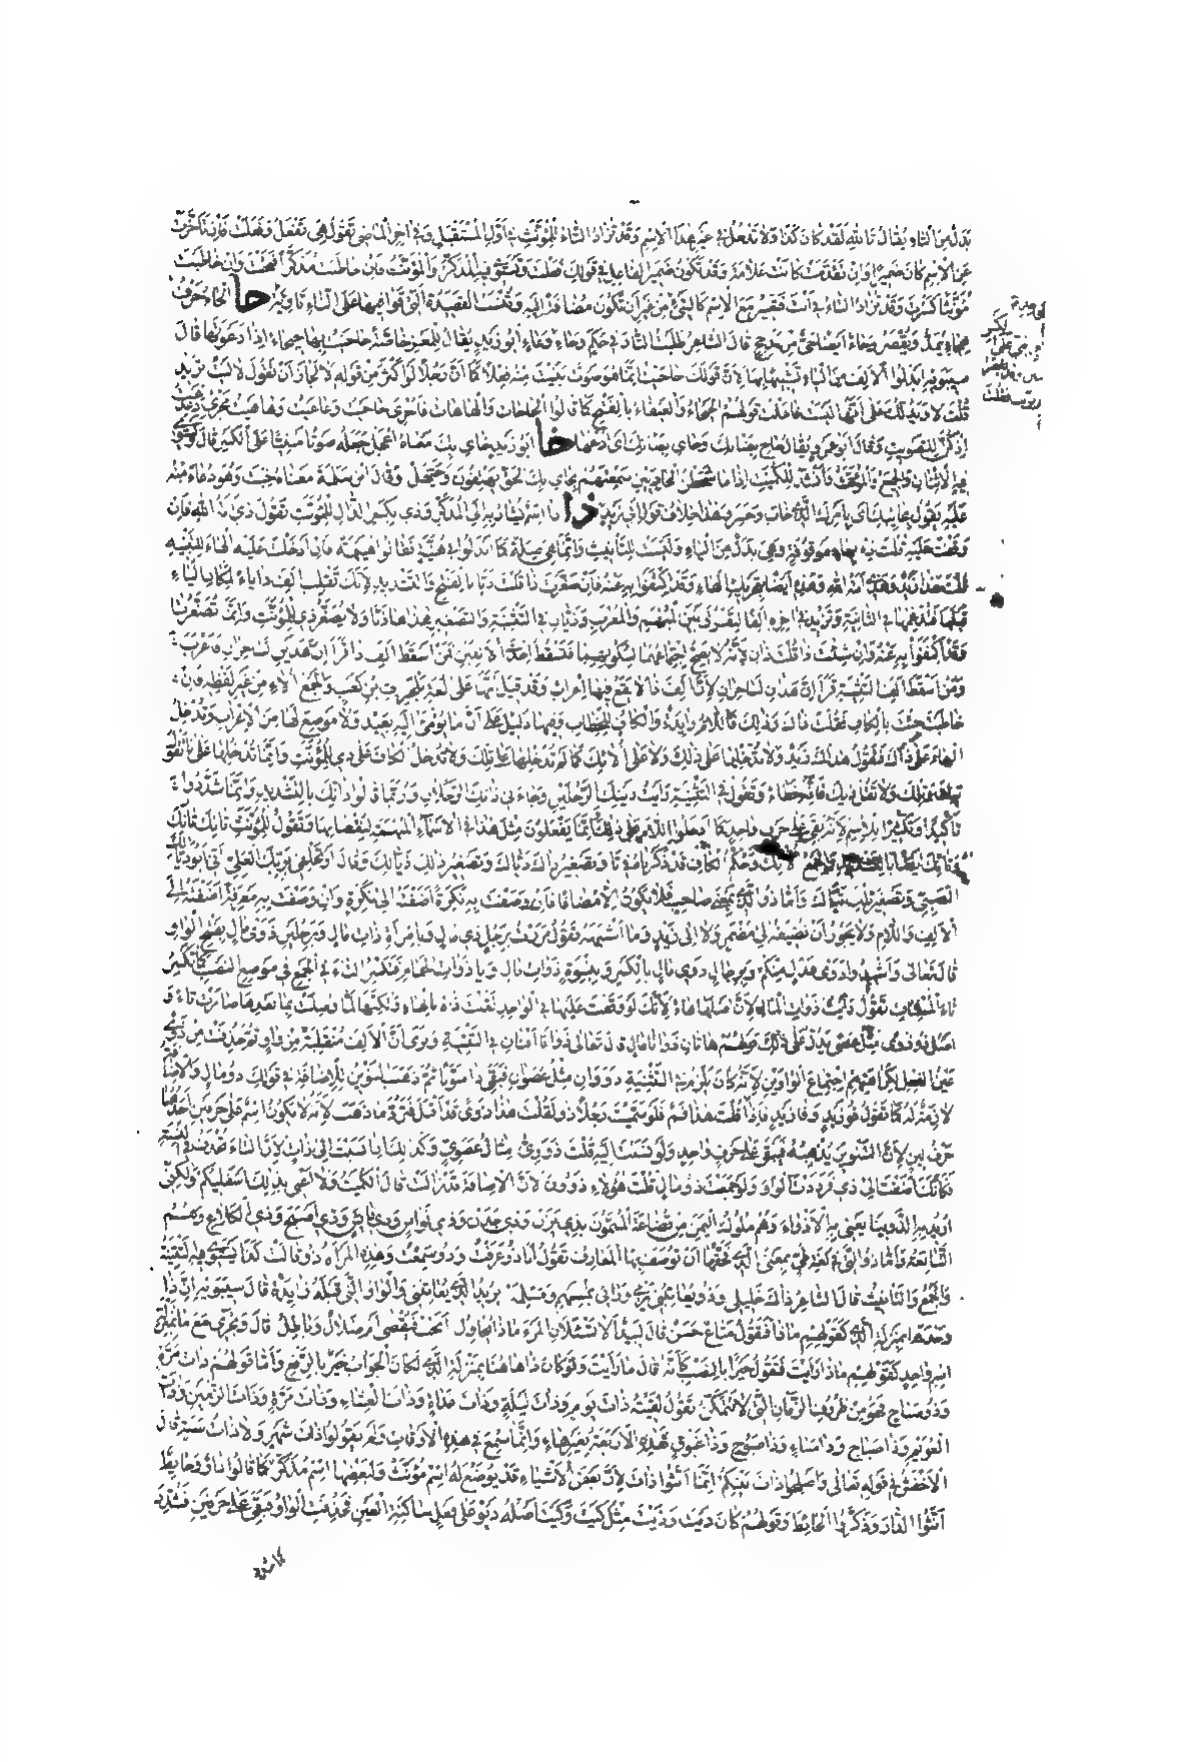 بَدَلٌ مِنَ التَّاءِ يُقَالُ تَاللهِ لَقَدْ كَانَ كَذَا وَلَا تَدْخُلُ فِي غَيْرِ هَذَا الاِسْمِ وَقَدْ تُزَادُ التَّاءُ لِلْمُؤَنَّثِ فِي أَوَّلِ الْمُسْتَقْبَلِ وَفِي آخِرِ الْمَاضِي تَقُولُ هِيَ تَفْعَلُ وَفَعَلَتْ فَإِنْ تَأَخَّرَتْ
عَنِ الْاِسْمِ كَانَ ضَمِيرًا وَإِنْ تَقَدَّمَتْ كَانَتْ عَلَامَةً وَقَدْ تَكُونُ ضَمِيرَ الْفَاعِلِ فِي قَوْلِكَ فَعَلْتَ وَيَسْتَوِي فِيهِ الْمُذَكَّرُ وَالْمُؤَنَّثُ فَإِنْ خَاطَبْتَ مُذَكَّرًا فَتَحْتَ وَإِنْ خَاطَبْتَ
مُؤَنَّثًا كَسَرْتَ وَقَدْ تُزَادُ التَّاءُ فِي أَنْتَ فَتَصِيرُ مَعَ الْاِسْمِ كَالشَّيْءِ مِنْ غَيْرِ أَنْ تَكُونَ مُضَافَةً إِلَيْهِ وَتُنْسَبُ الْقَصِيدَةُ الَّتِي قَوَافِيهَا عَلَى التَّاءِ تَاوِيَّةٌ حا الْحَاءُ حَرْفُ
هِجَاءٍ يُمَدُّ وَيُقْصَرُ وَحَاءُ أَيْضًا حَيٌّ مِنْ مَذْحِجٍ قَالَ الشَّاعِرُ طَلَبْتُ الثَّأْرَ فِي حَكَمٍ وَحَاءِ أَبُو زَيْدٍ يُقَالُ لِلْمَعْزِ خَاصَّةً حَاحَيْتُ بِهَا حِيحَاءً إِذَا دَعَوْتَهَا قَالَ
سِيبَوَيْهِ أَبْدَلُوا الْأَلِفَ مِنَ الْيَاءِ لِشَبَهِهَا بِهَا لِأَنَّ قَوْلَكَ حَاحَيْتُ إِنَّمَا هُوَ صَوْتٌ بَنَيْتَ مِنْهُ فِعْلًا كَمَا أَنَّ رَجُلًا لَوْ أَكْثَرَ مِنْ قَوْلِهِ لَا لَجَازَ أَنْ تَقُولَ لَالَيْتَ تُرِيدُ
قُلْتَ لَا وَيَدُلُّكَ عَلَى أَنَّهَا لَيْسَتْ فَاعَلْتُ قَوْلُهُمُ الْحَيْحَاءُ وَالْعَيْعَاءُ بِالْفَتْحِ كَمَا قَالُوا الْحَاحَاتُ وَالْهَاهَاتُ فَأَجْرَى حَاحَيْتُ وَعَاعَيْتُ وَهَاهَيْتُ مَجْرَى دَعْدَعْتُ
إِذْ كُنَّ لِلتَّصْوِيتِ وَقَالَ أَبُو عَمْرٍو يُقَالُ حَاحِ بِضَأْنِكَ وَحَاي بِضَأْنِكَ أَيْ ادْعُهَا خا أَبُو زَيْدٍ خَاي بِكَ مَعْنَاهُ اعْجَلْ جَعَلَهُ صَوْتًا مَبْنِيًّا عَلَى الْكَسْرِ قَالَ وَيَسْتَوِي
فِيهِ الْاِثْنَانِ وَالْجَمْعُ وَالْمُؤَنَّثُ وَأَنْشَدَ لِلْكُمَيْتِ إِذَا مَا شَحَطْنَ الْحَادِيَيْنِ سَمِعْتَهُمْ بِخَاي بِكَ الْحَقْ يَهْتِفُونَ وَحَيَّهَلْ وَقَالَ ابْنُ سَلَمَةَ مَعْنَاهُ خِبْتَ وَهُوَ دُعَاءٌ مِنْهُ
عَلَيْهِ يَقُولُ بِخَائِبِكَ أَيْ بِأَمْرِكَ الَّذِي خَابَ وَخَسِرَ وَهَذَا خِلَافُ قَوْلِ أَبِي زَيْدٍ ذا ذَا اسْمٌ يُشَارُ بِهِ إِلَى الْمُذَكَّرِ وَذِي بِكَسْرِ الذَّالِ لِلْمُؤَنَّثِ تَقُولُ ذِي أَمَةُ اللهِ فَإِنْ
وَقَفْتَ عَلَيْهِ قُلْتَ ذِهْ بِهَاءٍ مَوْقُوفَةٍ وَهِيَ بَدَلٌ مِنَ الْيَاءِ وَلَيْسَتْ لِلتَّأْنِيثِ وَإِنَّمَا هِيَ صِلَةٌ كَمَا أَبْدَلُوا فِي هُنَيَّةٍ فَقَالُوا هُنَيْهَةٌ فَإِنْ أَدْخَلْتَ عَلَيْهِ الْهَاءَ لِلتَّنْبِيهِ
قُلْتَ هَذَا زَيْدٌ وَهَذِي أَمَةُ اللهِ وَهَذِهِ أَيْضًا بِتَحْرِيكِ الْهَاءِ وَقَدْ اكْتَفَوْا بِهِ عَنْهُ فَإِنْ صَغَّرْتَ ذَا قُلْتَ ذَيَّا بِالْفَتْحِ وَالتَّشْدِيدِ لِأَنَّكَ تَقْلِبُ أَلِفَ ذَا يَاءً لِمَكَانِ الْيَاءِ
قَبْلَهَا فَتُدْغِمُهَا فِي الثَّانِيَةِ وَتَزِيدُ فِي آخِرِهِ أَلِفًا لِتَفْرُقَ بَيْنَ الْمُبْهَمِ وَالْمُعْرَبِ وَذَيَّانِ فِي التَّثْنِيَةِ وَتَصْغِيرُ هَذَا هَاذَيَّا وَلَا يُصَغَّرُ ذِي لِلْمُؤَنَّثِ وَإِنَّمَا تُصَغِّرُ تَا
وَقَدْ اكْتَفَوْا بِهِ عَنْهُ وَإِنْ ثَنَّيْتَ ذَا قُلْتَ ذَانِ لِأَنَّهُ لَا يَصِحُّ اجْتِمَاعُهُمَا لِسُكُونِهِمَا فَتَسْقُطُ إِحْدَى الْأَلِفَيْنِ فَمَنْ أَسْقَطَ أَلِفَ ذَا قَرَأَ إِنَّ هَذَيْنِ لَسَاحِرَانِ فَأَعْرَبَ
وَمَنْ أَسْقَطَ أَلِفَ التَّثْنِيَةِ قَرَأَ إِنَّ هَذَانِ لَسَاحِرَانِ لِأَنَّ أَلِفَ ذَا لَا يَقَعُ فِيهَا إِعْرَابٌ وَقَدْ قِيلَ إِنَّهَا عَلَى لُغَةِ بَلْحَرِثِ بْنِ كَعْبٍ وَالْجَمْعُ أُلَاءِ مِنْ غَيْرِ لَفْظِهِ فَإِنْ
خَاطَبْتَ جِئْتَ بِالْكَافِ فَقُلْتَ ذَاكَ وَذَلِكَ فَاللَّامُ زَائِدَةٌ وَالْكَافُ لِلْخِطَابِ وَفِيهَا دَلِيلٌ عَلَى أَنَّ مَا يُومَى إِلَيْهِ بَعِيدٌ وَلَا مَوْضِعَ لَهَا مِنَ الْإِعْرَابِ وَتُدْخِلُ
الْهَاءَ عَلَى ذَاكَ فَتَقُولُ هَذَاكَ زَيْدٌ وَلَا تُدْخِلُهَا عَلَى ذَلِكَ وَلَا عَلَى أُولَئِكَ كَمَا لَمْ تُدْخِلْهَا عَلَى تِلْكَ وَلَا تُدْخِلُ الْكَافَ عَلَى ذِي لِلْمُؤَنَّثِ وَإِنَّمَا تُدْخِلُهَا عَلَى تَا تَقُولُ
تِيكَ وَتِلْكَ وَلَا تَقُلْ ذِيكَ فَإِنَّهُ خَطَاءٌ وَتَقُولُ فِي التَّثْنِيَةِ رَأَيْتُ ذَيْنِكَ الرَّجُلَيْنِ وَجَاءَنِي ذَانِكَ الرَّجُلَانِ وَرُبَّمَا قَالُوا ذَانِّكَ بِالتَّشْدِيدِ وَإِنَّمَا شَدَّدُوا
تَأْكِيدًا وَتَكْثِيرًا لِلْاِسْمِ لِأَنَّهُ بَقِيَ عَلَى حَرْفٍ وَاحِدٍ كَمَا أَدْخَلُوا اللَّامَ عَلَى ذَلِكَ وَإِنَّمَا يَفْعَلُونَ مِثْلَ هَذَا فِي الْأَسْمَاءِ الْمُبْهَمَةِ لِنُقْصَانِهَا وَتَقُولُ لِلْمُؤَنَّثِ تَانِكَ وَتَانِّكَ
أَيْضًا بِالتَّشْدِيدِ وَالْجَمْعُ أُولَئِكَ وَحُكْمُ الْكَافِ قَدْ ذَكَرْنَاهُ فِي تَا وَتَصْغِيرُ ذَاكَ ذَيَّاكَ وَتَصْغِيرُ ذَلِكَ ذَيَّالِكَ وَقَالَ أَوْ تَحْلِفِي بِرَبِّكِ الْعَلِيِّ أَنِّي أَبُو ذَيَّالِكَ
الصَّبِيِّ وَتَصْغِيرُ تِلْكَ تَيَّاكَ وَأَمَّا ذُو الَّذِي بِمَعْنَى صَاحِبٍ فَلَا يَكُونُ إِلَّا مُضَافًا فَإِنْ وَصَفْتَ بِهِ نَكِرَةً أَضَفْتَهُ إِلَى نَكِرَةٍ وَإِنْ وَصَفْتَ بِهِ مَعْرِفَةً أَضَفْتَهُ إِلَى
الْأَلِفِ وَاللَّامِ وَلَا يَجُوزُ أَنْ تُضِيفَهُ إِلَى مُضْمَرٍ وَلَا إِلَى زَيْدٍ وَمَا أَشْبَهَهُ تَقُولُ مَرَرْتُ بِرَجُلٍ ذِي مَالٍ وَبِامْرَأَةٍ ذَاتِ مَالٍ وَبِرَجُلَيْنِ ذَوَيْ مَالٍ بِفَتْحِ الْوَاوِ
قَالَ تَعَالَى وَأَشْهِدُوا ذَوَيْ عَدْلٍ مِنْكُمْ وَبِرِجَالٍ ذَوِي مَالٍ بِالْكَسْرِ وَبِنِسْوَةٍ ذَوَاتِ مَالٍ وَيَا ذَوَاتِ الْجِمَامِ فَتَكْسِرُ التَّاءَ فِي الْجَمْعِ فِي مَوْضِعِ النَّصْبِ كَمَا تَكْسِرُ
تَاءَ الْمُسْلِمَاتِ تَقُولُ رَأَيْتُ ذَوَاتِ الْمَالِ لِأَنَّ أَصْلَهَا هَاءٌ لِأَنَّكَ لَوْ وَقَفْتَ عَلَيْهَا فِي الْوَاحِدِ لَقُلْتَ ذَاهْ بِالْهَاءِ وَلَكِنَّهَا لَمَّا وُصِلَتْ بِمَا بَعْدَهَا صَارَتْ تَاءً وَ
أَصْلُ ذُو ذَوًى مِثْلُ عَصًا يَدُلُّ عَلَى ذَلِكَ قَوْلُهُمْ هَاتَانِ ذَوَاتَا مَالٍ قَالَ تَعَالَى ذَوَاتَا أَفْنَانٍ فِي التَّثْنِيَةِ وَنَرَى أَنَّ الْأَلِفَ مُنْقَلِبَةٌ مِنْ وَاوٍ ثُمَّ حُذِفَتْ مِنْ ذَوًى
عَيْنُ الْفِعْلِ لِكَرَاهَتِهِمْ اجْتِمَاعَ الْوَاوَيْنِ لِأَنَّهُ كَانَ يَلْزَمُ فِي التَّثْنِيَةِ ذَوَوَانِ مِثْلُ عَصَوَانِ فَبَقِيَ ذًا مُنَوَّنًا ثُمَّ ذَهَبَ التَّنْوِينُ لِلْإِضَافَةِ فِي قَوْلِكَ ذُو مَالٍ وَالْإِضَافَةُ
لَازِمَةٌ لَهُ كَمَا تَقُولُ فُو زَيْدٍ وَفَا زَيْدٍ فَإِذَا أَفْرَدْتَ قُلْتَ هَذَا فَمٌ فَلَوْ سَمَّيْتَ رَجُلًا ذُو لَقُلْتَ هَذَا ذَوًى قَدْ أَقْبَلَ فَتَرُدُّ مَا ذَهَبَ لِأَنَّهُ لَا يَكُونُ اسْمٌ عَلَى حَرْفَيْنِ أَحَدُهُمَا
حَرْفُ لِينٍ لِأَنَّ التَّنْوِينَ يُذْهِبُهُ فَيَبْقَى عَلَى حَرْفٍ وَاحِدٍ وَلَوْ نَسَبْتَ إِلَيْهِ قُلْتَ ذَوَوِيٌّ مِثَالُ عَصَوِيٍّ وَكَذَلِكَ إِذَا نَسَبْتَ إِلَى ذَاتٍ لِأَنَّ التَّاءَ تُحْذَفُ فِي النِّسْبَةِ
فَكَأَنَّكَ أَضَفْتَ إِلَى ذِي فَرَدَدْتَ الْوَاوَ وَلَوْ جَمَعْتَ ذُو مَالٍ قُلْتَ هَؤُلَاءِ ذَوُونَ لِأَنَّ الْإِضَافَةَ قَدْ زَالَتْ قَالَ الْكُمَيْتُ وَلَا أَعْنِي بِذَلِكَ أَسْفَلِيكُمْ وَلَكِنِّي
أُرِيدُ بِهِ الذَّوِينَا يَعْنِي بِهِ الْأَذْوَاءَ وَهُمْ مُلُوكُ الْيَمَنِ مِنْ قُضَاعَةَ الْمُسَمَّوْنَ بِذِي يَزَنَ وَذِي جَدَنٍ وَذِي نُوَاسٍ وَذِي فَائِشٍ وَذِي أَصْبَحَ وَذِي الْكَلَاعِ وَهُمُ
التَّبَابِعَةُ وَأَمَّا ذُو الَّتِي فِي لُغَةِ طَيِّئٍ بِمَعْنَى الَّذِي فَحَقُّهَا أَنْ تُوصَفَ بِهَا الْمَعَارِفُ تَقُولُ أَنَا ذُو عَرَفْتَ وَذُو سَمِعْتَ وَهَذِهِ امْرَأَةٌ ذُو قَالَتْ كَذَا يَسْتَوِي فِيهِ التَّثْنِيَةُ
وَالْجَمْعُ وَالتَّأْنِيثُ قَالَ الشَّاعِرُ ذَاكَ خَلِيلِي وَذُو يُعَاتِبُنِي يَرْمِي وَرَائِي بِامْسَهْمِ وَامْسَلِمَهْ يُرِيدُ الَّذِي يُعَاتِبُنِي وَالْوَاوُ الَّتِي قَبْلَهُ زَائِدَةٌ قَالَ سِيبَوَيْهِ إِنَّ ذَا
وَحْدَهَا بِمَنْزِلَةِ الَّذِي كَقَوْلِهِمْ مَاذَا رَأَيْتَ فَتَقُولُ مَتَاعٌ حَسَنٌ قَالَ لَبِيدٌ أَلَا تَسْأَلَانِ الْمَرْءَ مَاذَا يُحَاوِلُ أَنَحْبٌ فَيُقْضَى أَمْ ضَلَالٌ وَبَاطِلُ قَالَ وَيُجْرَى مَعَ مَا بِمَنْزِلَةِ
اسْمٍ وَاحِدٍ كَقَوْلِهِمْ مَاذَا رَأَيْتَ فَتَقُولُ خَيْرًا بِالنَّصْبِ كَأَنَّهُ قَالَ مَا رَأَيْتَ وَلَوْ كَانَ ذَا هَاهُنَا بِمَنْزِلَةِ الَّذِي لَكَانَ الْجَوَابُ خَيْرٌ بِالرَّفْعِ وَأَمَّا قَوْلُهُمْ ذَاتَ مَرَّةٍ
وَذُو صَبَاحٍ فَهُوَ مِنْ ظُرُوفِ الزَّمَانِ الَّتِي لَا تَتَمَكَّنُ تَقُولُ لَقِيتُهُ ذَاتَ يَوْمٍ وَذَاتَ لَيْلَةٍ وَذَاتَ غَدَاةٍ وَذَاتَ الْعِشَاءِ وَذَاتَ مَرَّةٍ وَذَاتَ الزُّمَيْنِ وَذَاتَ
الْعُوَيْمِ وَذَا صَبَاحٍ وَذَا مَسَاءٍ وَذَا صَبُوحٍ وَذَا غَبُوقٍ فَهَذِهِ الْأَرْبَعَةُ بِغَيْرِ هَاءٍ وَإِنَّمَا سُمِعَ فِي هَذِهِ الْأَوْقَاتِ وَلَمْ يَقُولُوا ذَاتَ شَهْرٍ وَلَا ذَاتَ سَنَةٍ قَالَ
الْأَخْفَشُ فِي قَوْلِهِ تَعَالَى وَأَصْلِحُوا ذَاتَ بَيْنِكُمْ إِنَّمَا أَنَّثُوا ذَاتَ لِأَنَّ بَعْضَ الْأَشْيَاءِ قَدْ يُوضَعُ لَهُ اسْمٌ مُؤَنَّثٌ وَلِبَعْضِهَا اسْمٌ مُذَكَّرٌ كَمَا قَالُوا دَارٌ وَحَائِطٌ
أَنَّثُوا الدَّارَ وَذَكَّرُوا الْحَائِطَ وَقَوْلُهُمْ كَانَ ذَيْتَ وَذَيْتَ مِثْلُ كَيْتَ وَكَيْتَ أَصْلُهُ ذَيْوٌ عَلَى فَعْلٍ سَاكِنَةَ الْعَيْنِ فَحُذِفَتِ الْوَاوُ فَبَقِيَ عَلَى حَرْفَيْنِ فَشُدِّدَ